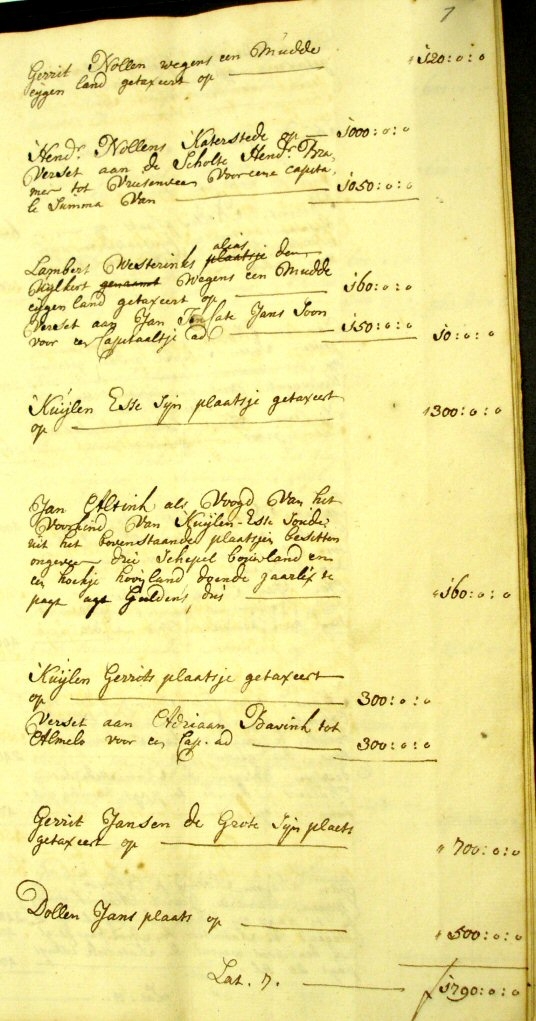 7
Gerrit Nollen wegens een Mudde
eygen land getaxeert op 120:0:0
Hendr. Nollens Katerstede op 1000:0:0
Verset aan de Scholte Hendr. Bra,
mer tot Vriesenveen Voor eene capita,
le Summa Van 1050:0:0
alias
Lambert Westerinks plaatsje den
genaamt Wegens een Mudde
eygen land getaxeert op 160:0:0
Verset aan Jan Ten Cate Jans Soon
voor een Capitaaltje ad 150:0:0 10:0:0
Kuijlen Esse Sijn plaatsje getaxeert
op 1300:0:0
Jan Altink als Voogd Van het
Voorkind Van Kuijlen-Esse Soude
uit het bovenstaande plaatsjen besitten
ongeveer drie Schepel bouwland en
een hoekje hooijland doende jaarlix te
pagt agt Guldens, dus 160:0:0
Kuijlen Gerrits plaatsje getaxeert
op 300:0:0
Verset aan Adriaan Bavink tot
Almelo voor een Cap. ad 300:0:0
Gerrit Jansen de Grote Sijn plaets
getaxeert op 700:0:0
Dollen Jans plaats op 500:0:0
Lat. 7. 1790:0:0